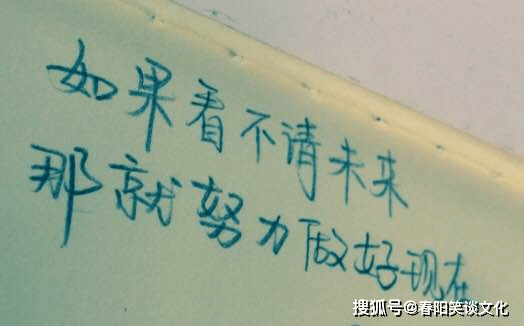 如果看不请未来
那就努力做好现在
搜狐号@春阳笑谈文化